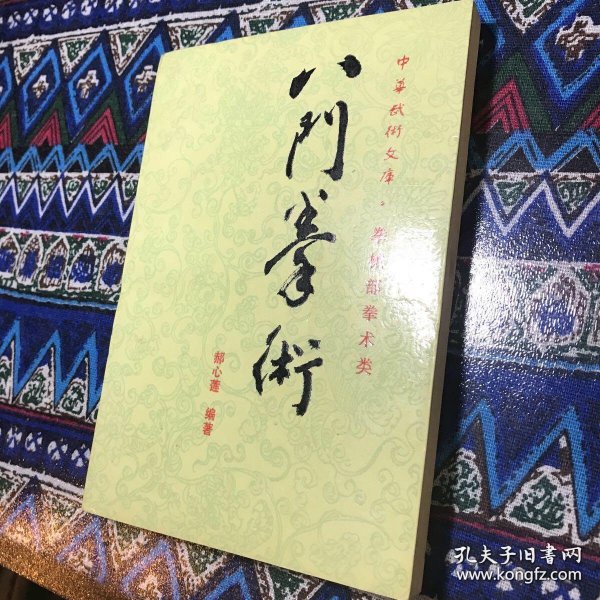 中華武術文庫·拳械部拳术类
八門拳術
郝心莲 编著
孔夫子旧书网
www.kongfz.com